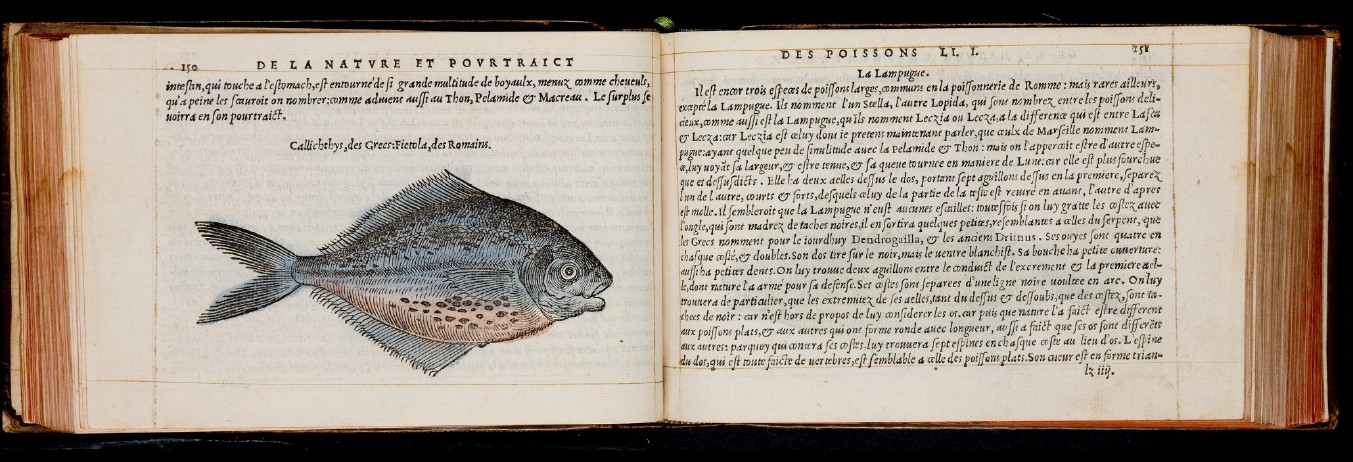 150
DE LA NATVRE ET POVRTRAICT
intestin, qui touche a l'estomach, est entourné de si grande multitude de boyaulx, menuz comme cheueuls,
qu'a peine les sçauroit on nombrer: comme aduient aussi au Thon, Pelamide & Macreau. Le surplus se
uoirra en son pourtraict.
Callichthys, des Grecs: Fietola, des Romains.
DES POISSONS LI. I.
151
La Lampugue.
Il est encor trois especes de poissons larges, communs en la poissonnerie de Romme: mais rares ailleurs,
excepté la Lampugue. Ils nomment l'un Stella, l'autre Lopida, qui sont nombrez entre les poissons deli-
cieux, comme aussi est la Lampugue, qu'ils nomment Leczia ou Lecza, a la difference qui est entre Lasca
& Lecza: car Leczia est celuy dont ie pretens maintenant parler, que ceulx de Marseille nomment Lam-
pugue: ayant quelque peu de similitude auec la Pelamide & Thon: mais on l'apperçoit estre d'autre espe-
ce, luy uoyāt sa largeur, & estre tenue, & sa queue tournee en maniere de Lune: car elle est plus fourchue
que es dessusdicts. Elle ha deux aelles dessus le dos, portant sept aguillons dessus en la premiere, separez
l'un de l'autre, courts & forts, desquels celuy de la partie de la teste est reuiré en auant, l'autre d'apres
est molle. Il sembleroit que la Lampugue n'eust aucunes escailles: toutesfois si on luy gratte les costez auec
l'ongle, qui sont madrez de taches noires, il en sortira quelques petites, resemblantes a celles du serpent, que
les Grecs nomment pour le iourdhuy Dendrogailla, & les anciens Driinus. Ses ouyes sont quatre en
chasque costé, & doubles. Son dos tire sur le noir, mais le uentre blanchist. Sa bouche ha petite ouuerture:
aussi ha petites dents. On luy trouue deux aguillons entre le conduict de l'excrement & la premiere ael-
le, dont nature l'a armé pour sa defense. Ses costes sont separees d'une ligne noire uoultee en arc. On luy
trouuera de particulier, que les extremitez de ses aelles, tant du dessus & dessoubs, que des costez, sont ta-
chees de noir: car n'est hors de propos de luy considerer les os. car puis que nature l'a faict estre different
aux poissons plats, & aux autres qui ont forme ronde auec longueur, aussi a faict que ses os sont differēts
aux autres: parquoy qui contera ses costes, luy trouuera sept espines en chasque coste au lieu d'os. L'espine
du dos, qui est toute faicte de uertebres, est semblable a celle des poissons plats. Son cueur est en forme trian-
lz iiij.